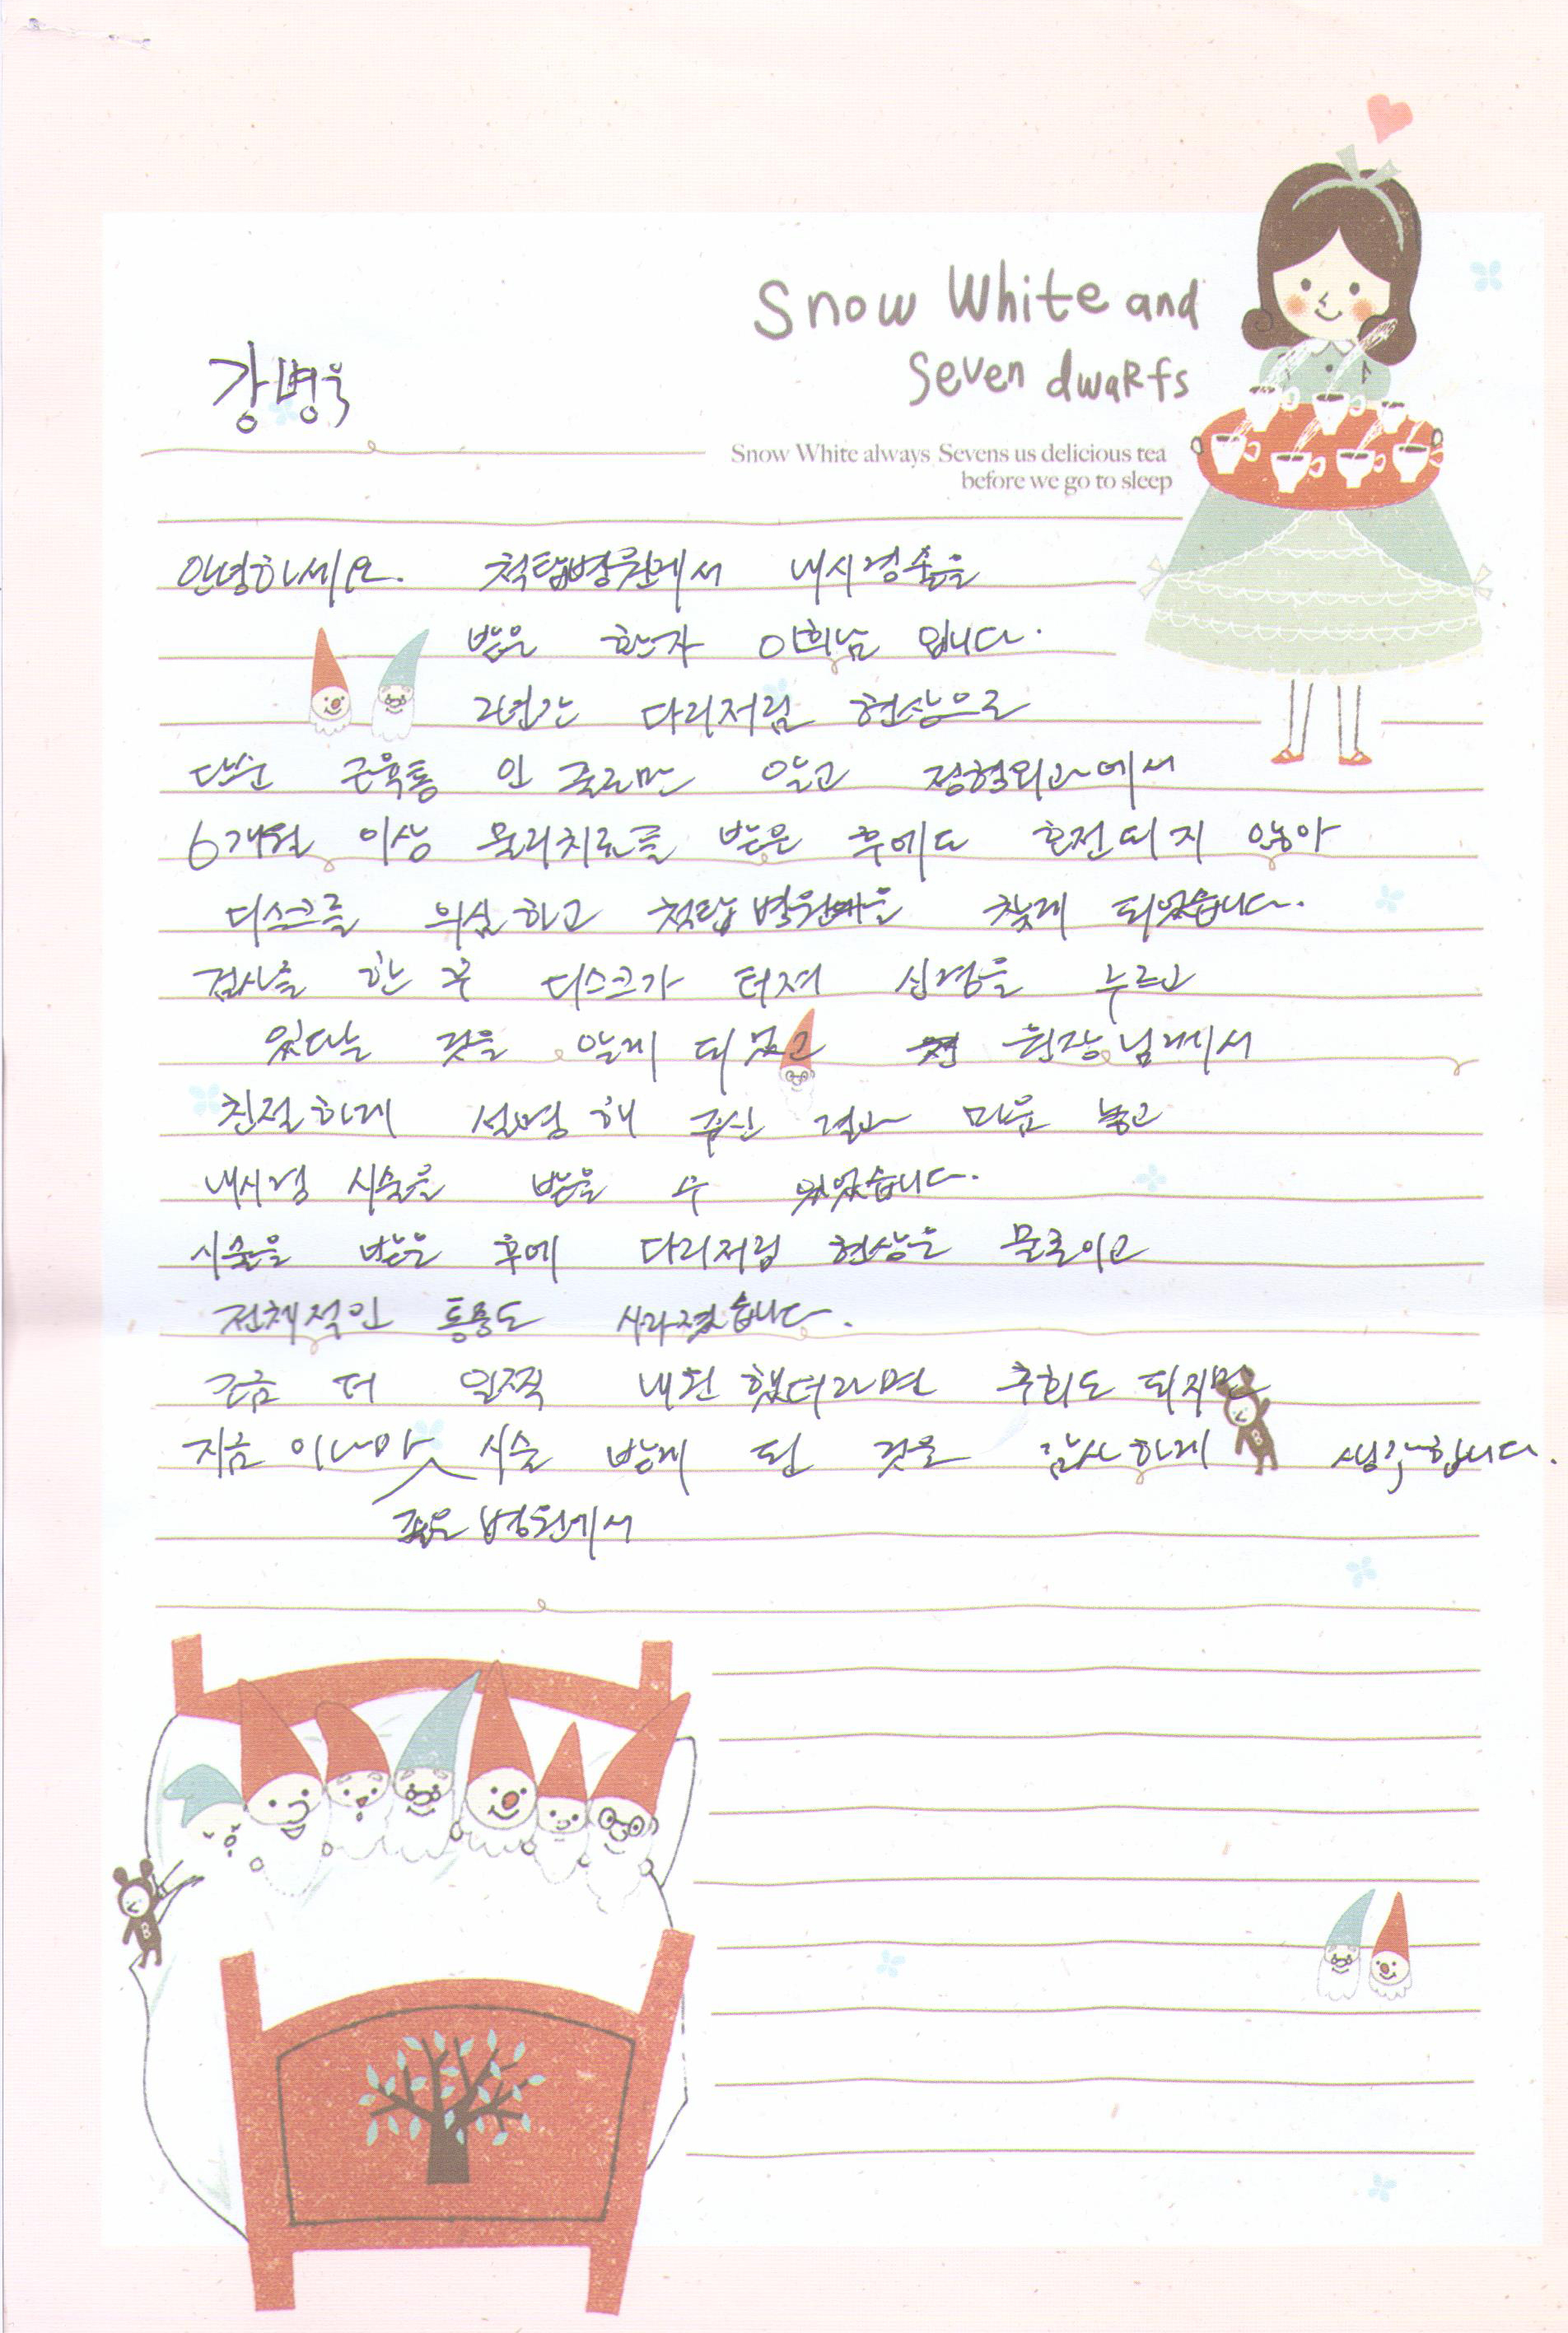 Snow White and
Seven dwaRfs
강병욱
Snow White always Sevens us delicious tea
before we go to sleep
안녕하세요. 척탑병원에서 내시경술을
받은 환자 이희남 입니다.
2년간 다리저림 현상으로
단순 근육통 인 줄로만 알고 정형외과에서
6개월 이상 물리치료를 받은 후에도 호전되지 않아
디스크를 의심하고 척탑병원을 찾게 되었습니다.
검사를 한 후 디스크가 터져 신경을 누르고
있다는 것을 알게 되었고 원장님께서
친절하게 설명해 주신 결과 마음 놓고
내시경 시술을 받을 수 있었습니다.
시술을 받은 후에 다리저림 현상은 물론이고
전체적인 통증도 사라졌습니다.
조금 더 일찍 내원했더라면 후회도 되지만
지금 이나마 시술 받게 된 것을 감사하게 생각합니다.
좋은 병원에서
B
B